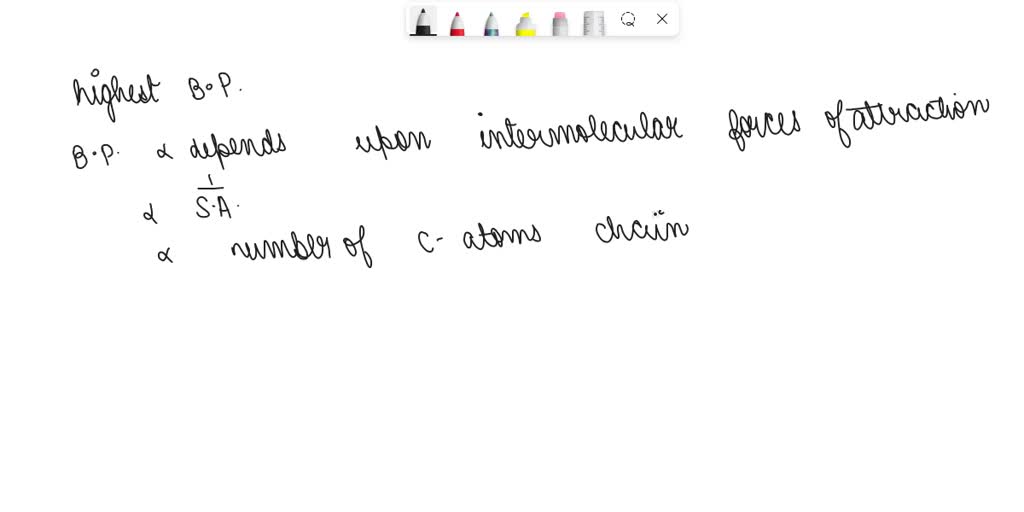 highest B.P.
B.P. ∝ depends upon intermolecular forces of attraction
∝ 1/S.A.
∝ number of C- atoms chain